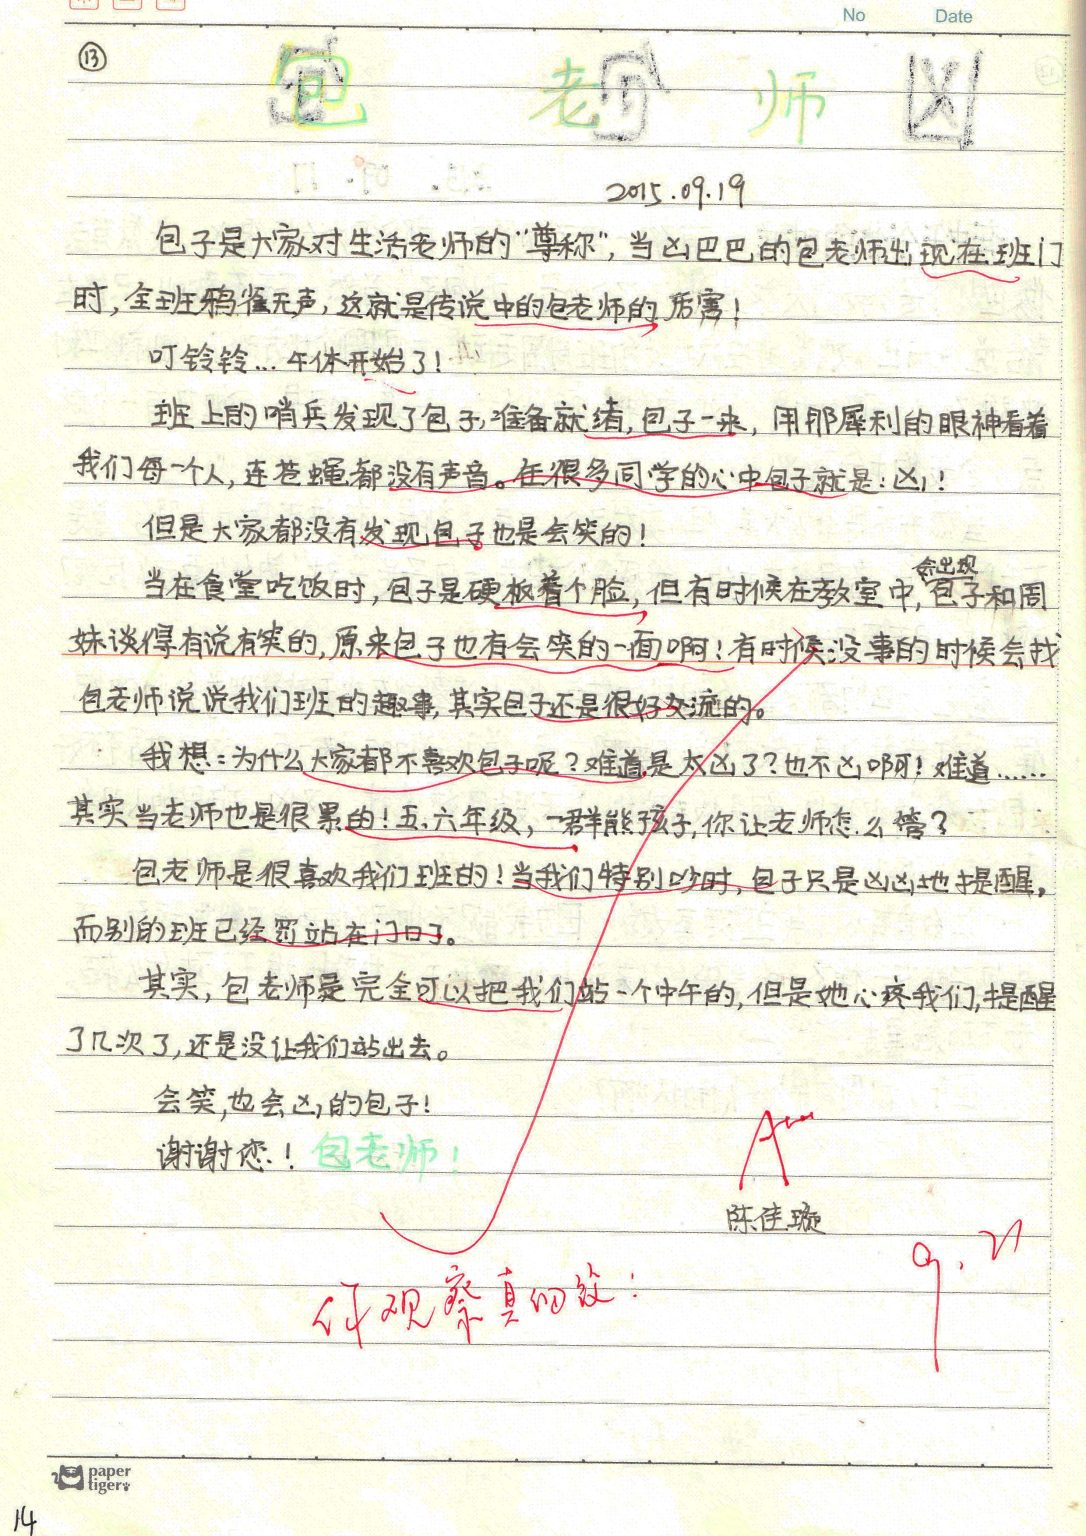 No Date
⑬
包老师凶
2015.09.19
包子是大家对生活老师的“尊称”,当凶巴巴的包老师出现在班门
时,全班鸦雀无声,这就是传说中的包老师的厉害!
叮铃铃...午休开始了!
班上的哨兵发现了包子,准备就绪,包子一来,用那犀利的眼神看着
我们每一个人,连苍蝇都没有声音。在很多同学的心中包子就是:凶!
但是大家都没有发现包子也是会笑的!
会出现
当在食堂吃饭时,包子是硬板着个脸,但有时候在教室中,包子和周
妹谈得有说有笑的,原来包子也有会笑的一面啊!有时候没事的时候会找
包老师说说我们班的趣事,其实包子还是很好交流的。
我想:为什么大家都不喜欢包子呢?难道是太凶了?也不凶啊!难道……
其实当老师也是很累的!五、六年级,一群熊孩子,你让老师怎么管?
包老师是很喜欢我们班的!当我们特别吵时,包子只是凶凶地提醒,
而别的班已经罚站在门口了。
其实,包老师是完全可以把我们站一个中午的,但是她心疼我们,提醒
了几次了,还是没让我们站出去。
会笑,也会凶的包子!
谢谢您!包老师!
A
陈佳璇
9.21
你观察真细致!
paper
tiger
14